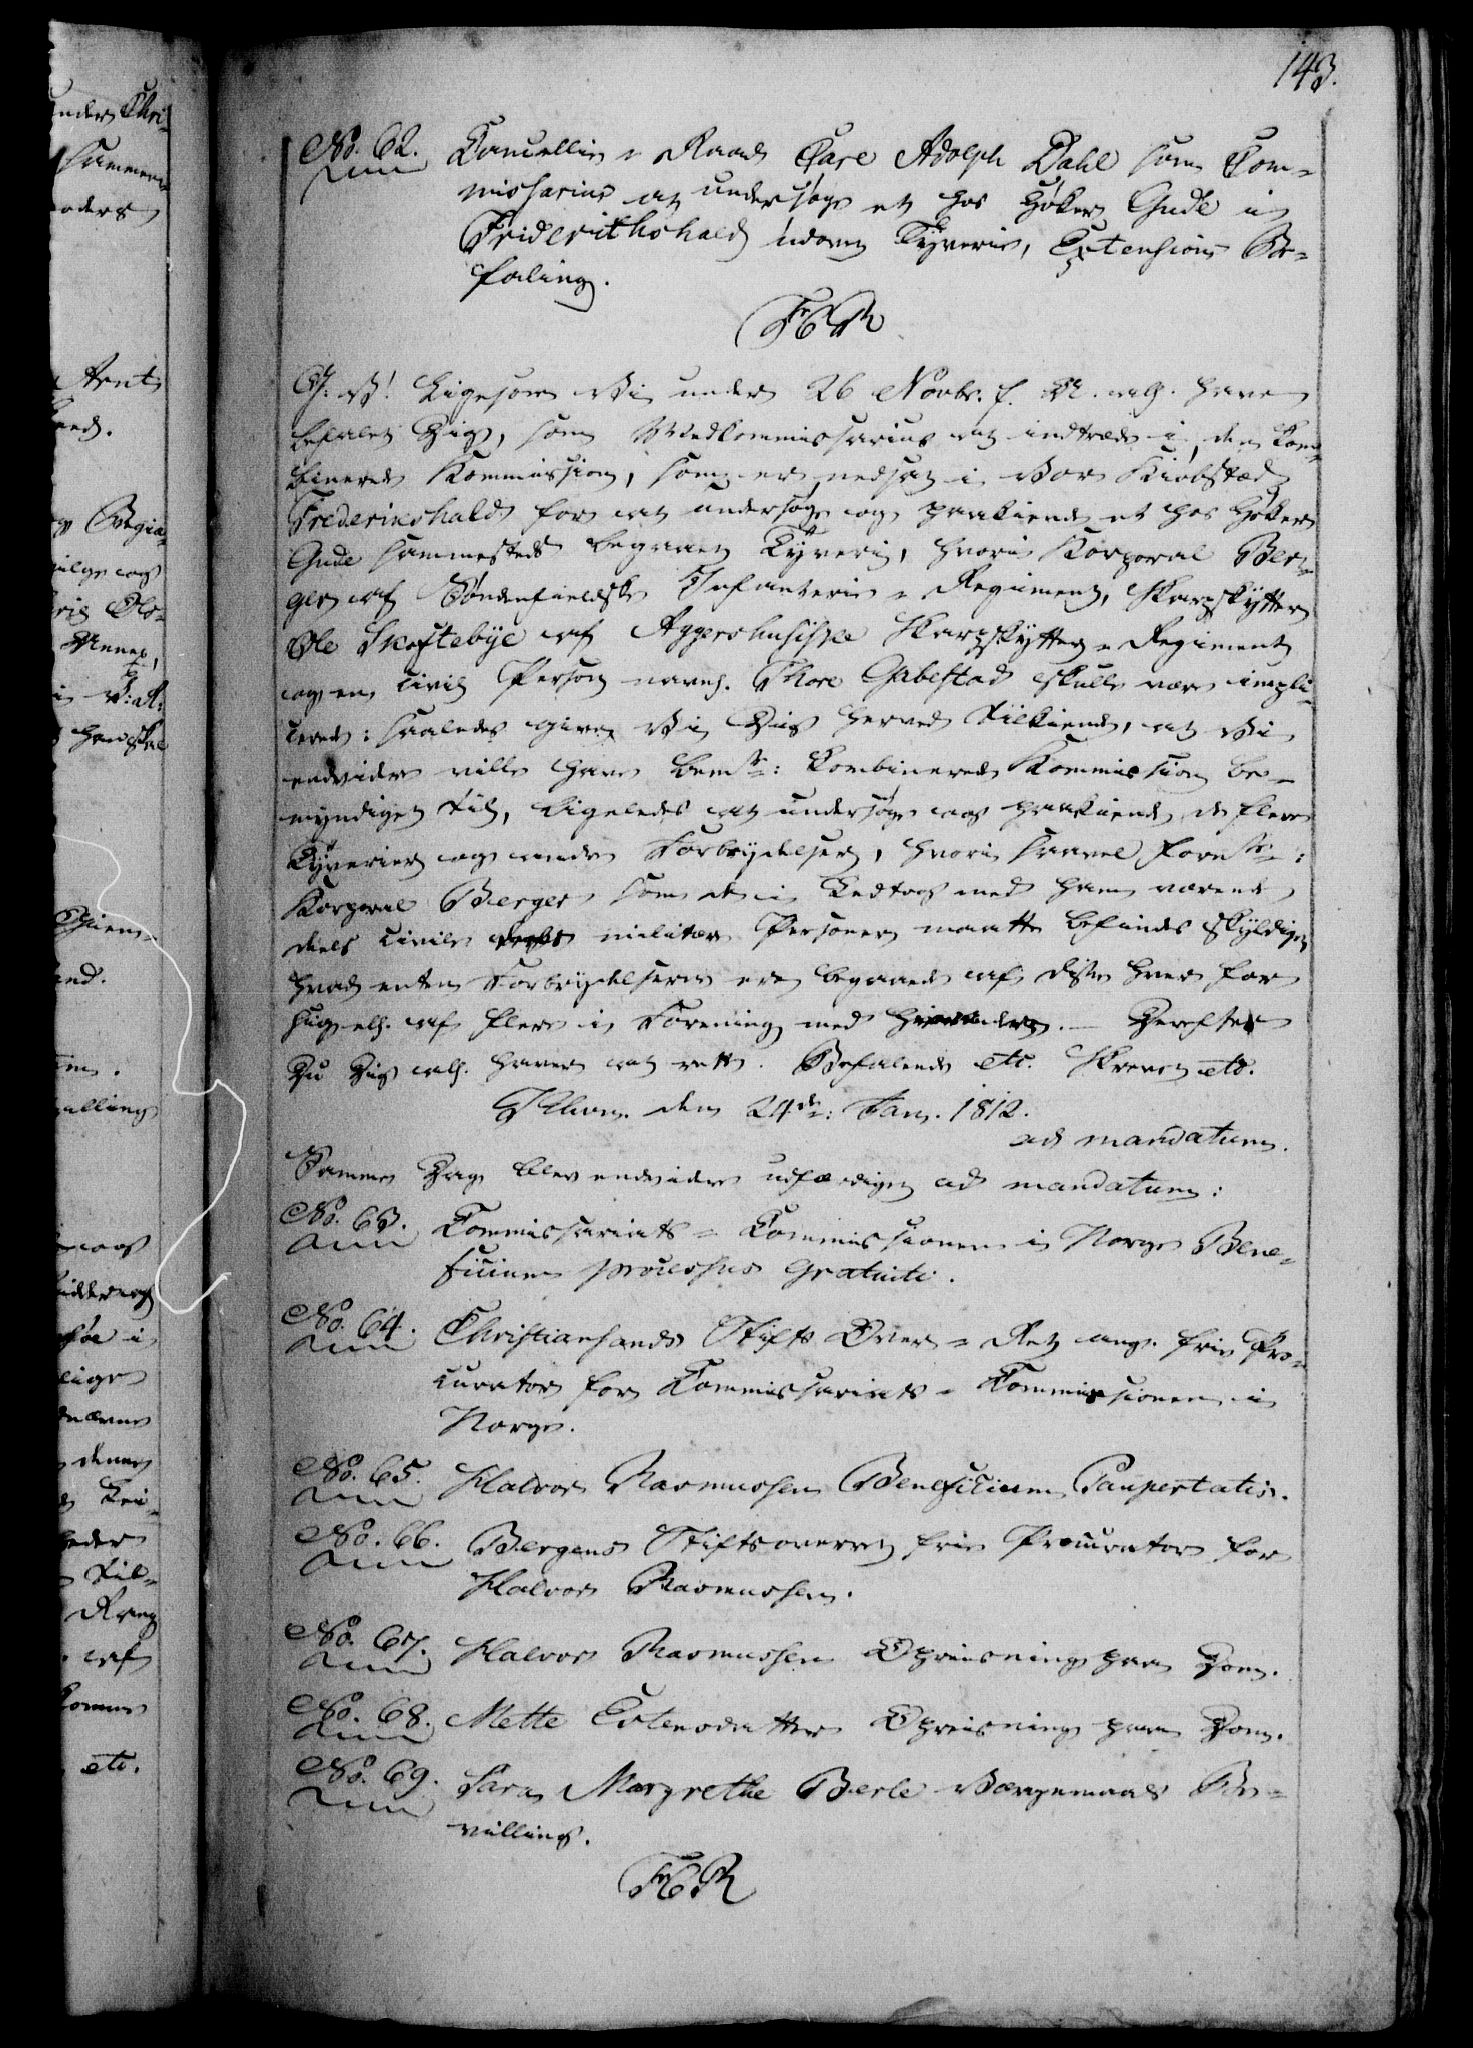 143.
No. 62. Cancellie = Raad Carl Adolph Dahl som Com=
missarius at undersøge et hos Høker Gude i
Friderichshald udøvet Tyverie, Extensions Be=
faling.
F6R
G. V! Ligesom Vi under 26 Novbr. f. A. alh. have
befalet Dig, som Medkommissarius at indtræde i den kom=
binerede Kommission, som er nedsat i Vor Kiøbstæd
Frederikshald for at undersøge og paakiende et hos Høker
Gude sammesteds begaaet Tyverie, hvori Korporal Ber=
ger af Søndenfieldske Infanterie = Regiment, Skarpskytter
Ole Skoftebye af Aggershusiske Skarpskytter = Regiment
og en civil Person navnl. Thore Gabestad skulle være impli=
cerede: saaledes give Vi Dig herved tilkiende, at Vi
endvidere ville have bemte: kombinerede Kommission be=
myndiget til, ligeledes at undersøge og paakiende de flere
Tyverier og andre Forbrydelser, hvori saavel fornte:
Korporal Berger som de i Ledtog med ham værende
deels civile deels militære Personer maatte befindes skyldige,
hvad enten Forbrydelserne ere begaaede af disse hver for
sig elh. af flere i Forening med hverandre. — Derefter
Du Dig alh. haver at rette. Befalende etc. Skrevet etc.
Khavn. den 24de: Jan. 1812.
ad mandatum.
Samme Dag blev endvidere udfærdiget ad mandatum:
No. 63. Commissariats = Commissionen i Norge Bene=
ficium processus gratuiti.
No. 64. Christiansands Stifts Over = Ret ang. frie Pro=
curator for Commissariats = Commissionen i
Norge.
No. 65. Halvor Rasmussen Beneficium Paupertatis.
No. 66. Bergens Stiftsoverret frie Procurator for
Halvor Rasmussen.
No. 67. Halvor Rasmussen Opreisning paa Dom.
No. 68. Mette Estensdatter Opreisning paa Dom.
No. 69. Sara Margrethe Berle Værgemaals Be=
villing.
F6R